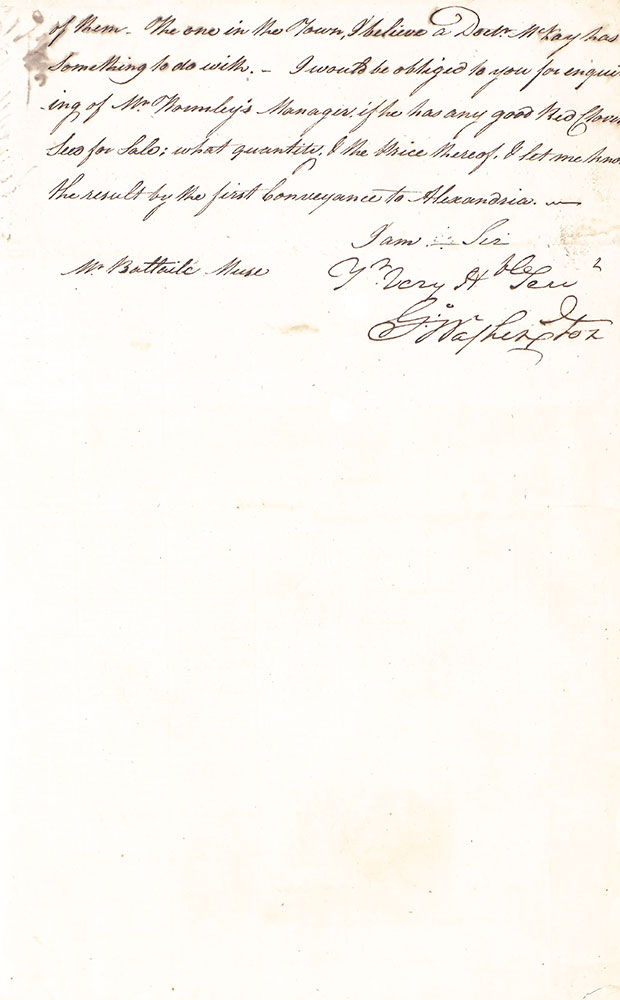 of them - The one in the Town, I believe a Doctr McKay has
something to do with. - I would be obliged to you for enquir
ing of Mr Wormley's Manager, if he has any good Red Clover
Seed for Sale; what quantity, & the Price thereof, & let me know
the result by the first Conveyance to Alexandria. -
I am - Sir
Mr Battaile Muse Yr Very Hble Servt
Go: Washington